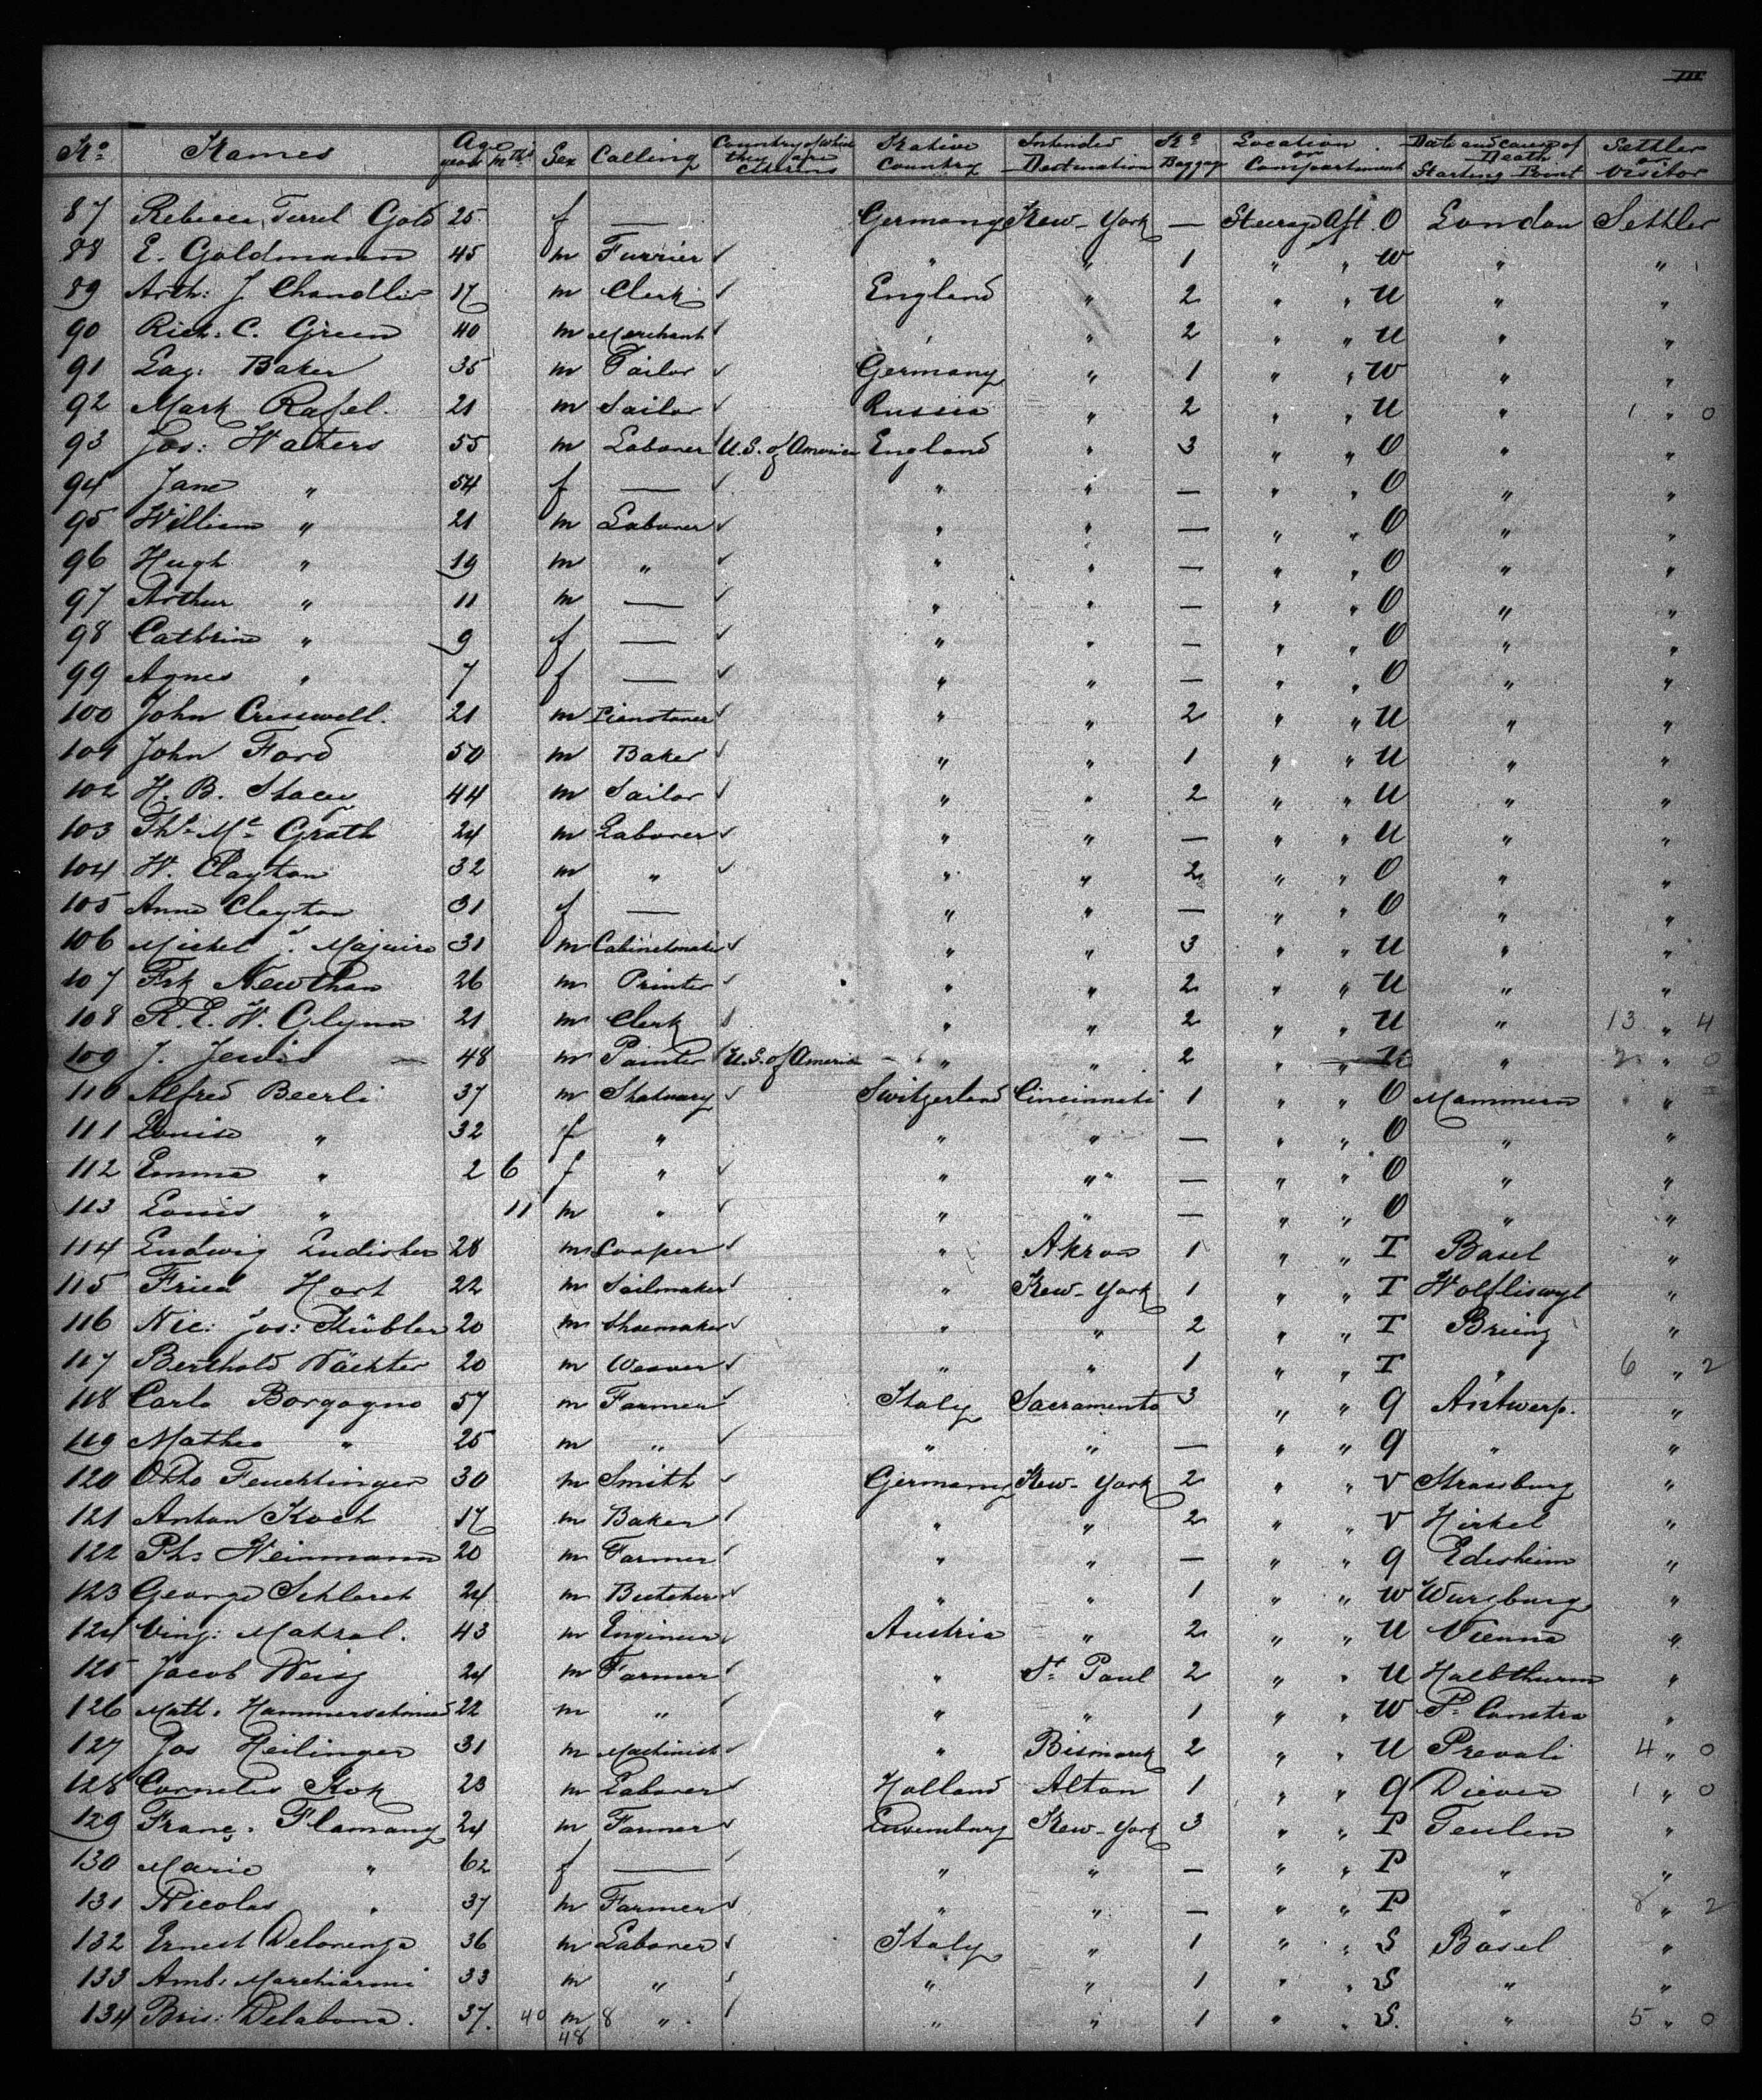 III
No Names Age years mths Sex Calling Country of which they are citizens Native Country Intended Destination No Baggage Location or Compartment Date and cause of Death Starting Point Settler or Visitor
87 Gold 25 f — Germany New-York — Steerage Aft O London Settler
88 E. Goldmann 45 m Furrier ✓ " " 1 " " W " "
89 Arth: J Chandler 17 m Clerk ✓ England " 2 " " U " "
90 Rich. C. Green 40 m Merchant ✓ " " 2 " " U " "
91 Baker 35 m Tailor ✓ Germany " 1 " " W " "
92 Mark Rafel. 21 m Sailor ✓ Russia " 2 " " U " 1 " 0
93 Jos: Walters 55 m Laborer U.S. of America England " 3 " " O " "
94 Jane " 54 f — ✓ " " — " " O " "
95 William " 21 m Laborer ✓ " " — " " O " "
96 Hugh " 19 m " ✓ " " — " " O " "
97 Arthur " 11 m — ✓ " " — " " O " "
98 Cathrine " 9 f — ✓ " " — " " O " "
99 Agnes " 7 f — ✓ " " — " " O " "
100 John Cresswell. 21 m Pianotuner ✓ " " 2 " " U " "
101 John Ford 50 m Baker ✓ " " 1 " " U " "
102 H. B. Stacey 44 m Sailor ✓ " " 2 " " U " "
103 Ths Mc Grath 24 m Laborer ✓ " " — " " U " "
104 W. Clayton 32 m " ✓ " " 2 " " O " "
105 Anne Clayton 31 f — " " — " " O " "
106 Michel Majuire 31 m Cabinetmaker ✓ " " 3 " " U " "
107 Frk Newthan 26 m Printer ✓ " " 2 " " U " "
108 R. E. W. Glynn 21 m Clerk ✓ " " 2 " " U " 13 " 4
109 J. Jewis 48 m Painter U.S. of America " " 2 " " U " 2 " 0
110 Alfred Beerli 37 m Statuary ✓ Switzerland Cincinnati 1 " " O Mammern "
111 Louise " 32 f " " " — " " O " "
112 Emma " 2 6 f " ✓ " " — " " O " "
113 Louis " 11 m " ✓ " " — " " O " "
114 Ludwig 28 m Cooper ✓ " Akron 1 " " T Basel "
115 Fried Hort 22 m Sailmaker ✓ " New-York 1 " " T Wolfliswyl "
116 Nic: Jos: Kübler 20 m Shoemaker ✓ " " 2 " " T Brienz "
117 Berthold Wächter 20 m Weaver ✓ " " 1 " " T " 6 " 2
118 Carlo Borgogno 57 m Farmer ✓ Italy Sacramento 3 " " Q Antwerp. "
119 Matheo " 25 m " ✓ " " — " " Q " "
120 Otto Feuchtinger 30 m Smith ✓ Germany New-York 2 " " V Strassburg "
121 Anton Koch 17 m Baker ✓ " " 2 " " V Hirkel "
122 Phs Weinmann 20 m Farmer ✓ " " — " " Q Edesheim "
123 George Schlereth 24 m Butcher ✓ " " 1 " " W Wurzburg "
124 Vinz: Matzal. 43 m Engineer ✓ Austria " 2 " " U Vienna "
125 Jacob Weisz 24 m Farmer ✓ " St. Paul 2 " " U Halbthurm "
126 Math. Hammerschmied 22 m " ✓ " " 1 " " W "
127 Jos Heilinger 31 m Machinist ✓ " Bismarck 2 " " U Prevali 4 " 0
128 Cornelis Kok 23 m Laborer ✓ Holland Alton 1 " " Q Diever 1 " 0
129 Franc. Flamang 24 m Farmer ✓ Luxemburg New-York 3 " " P Feulen "
130 Marie " 62 f — ✓ " " — " " P " "
131 Nicolas " 37 m Farmer ✓ " " — " " P " 8 " 2
132 Ernest Delorenza 36 m Laborer ✓ Italy " 1 " " S Basel "
133 Amb: Marchiarmi 33 m " ✓ " " 1 " " S " "
134 Delabona. 37. 40 m 8 " ✓ " " 1 " " S. " 5 " 0
48